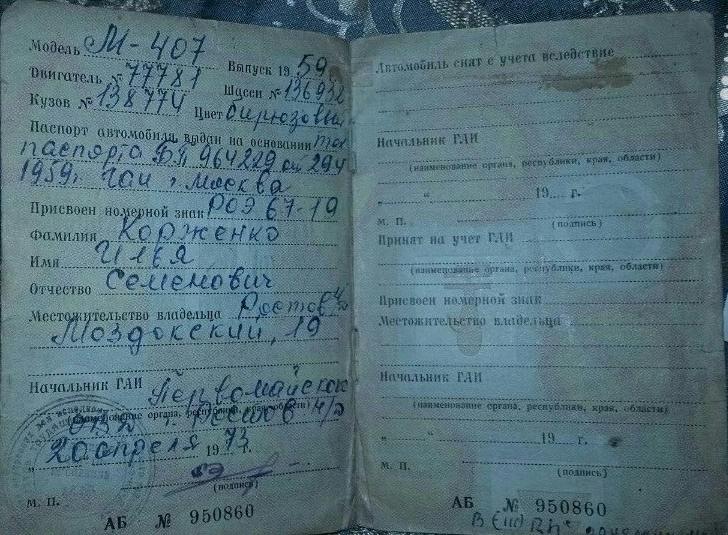 Модель М-407 Выпуск 1959
Двигатель № 77781 Шасси № 136932
Кузов № 138774 Цвет бирюзовый
Паспорт автомобиля выдан на основании тех
паспорта 964229 от 294
1959г. ГАИ г. Москва
Присвоен номерной знак РОЭ 67-19
Фамилия Корженко
Имя Илья
Отчество Семенович
Местожительство владельца Ростов н/Д
Моздокский, 19
Начальник ГАИ Первомайского
(наименование органа, республики, края, области)
ОВД г. Ростов н/Д
„20 апреля 1973 г.
(подпись)
М. П.
АБ № 950860
Автомобиль снят с учета вследствие
Начальник ГАИ
(наименование органа, республики, края, области)
„ “ 19 г.
М. П. (подпись)
Принят на учет ГАИ
(наименование органа, республики, края, области)
Присвоен номерной знак
Местожительство владельца
Начальник ГАИ
(наименование органа, республики, края, области)
„ “ 19 г.
М. П. (подпись)
АБ № 950860